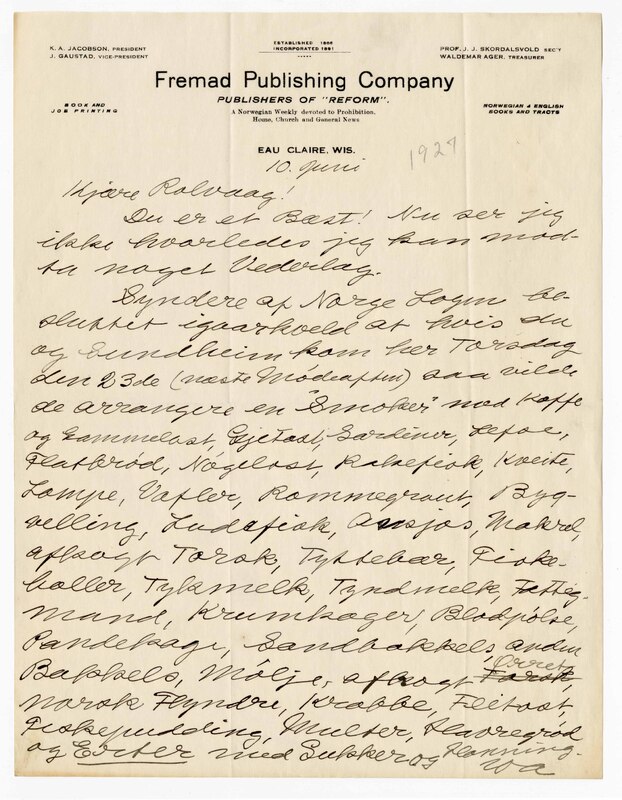 K. A. JACOBSON, PRESIDENT
J. GAUSTAD, VICE-PRESIDENT
ESTABLISHED 1886
INCORPORATED 1891
PROF. J. J. SKORDALSVOLD SEC'Y
WALDEMAR AGER, TREASURER
Fremad Publishing Company
PUBLISHERS OF "REFORM".
BOOK AND
JOB PRINTING
A Norwegian Weekly devoted to Prohibition,
Home, Church and General News
NORWEGIAN & ENGLISH
BOOKS AND TRACTS
EAU CLAIRE, WIS.
1927
10. Juni
Kjære Rolvaag!
Du er et Bæst! Nu ser jeg
ikke hvorledes jeg kan mod-
ta noget Vederlag.
Syndere af Norge Logen be-
sluttet igaarkveld at hvis du
og Sundheim kom her Torsdag
den 23de (næste Mødeaften) saa vilde
de arrangere en "Smoker" med Kaffe
og Gammelost, Gjetost, Sardiner, Lefse,
Flatbrød, Nøgelost, Rakefisk, Kveite,
Lompe, Vafler, Rømmegraut, Byg-
velling, Ludefisk, Ansjos, Makrel,
afkogt Torsk, Tyttebær, Fiske-
boller, Tykmelk, Tyndmelk, Fattig-
mand, Krumkager, Blodpølse,
Pandekage, Sandbakkels, anden
Bakkels, Mølje, afkogt Ørret,
norsk Flyndre, Krabbe, Feitost,
Fiskepudding, Multer, Havregrød
og Erter med Sukker og Honning.
WA